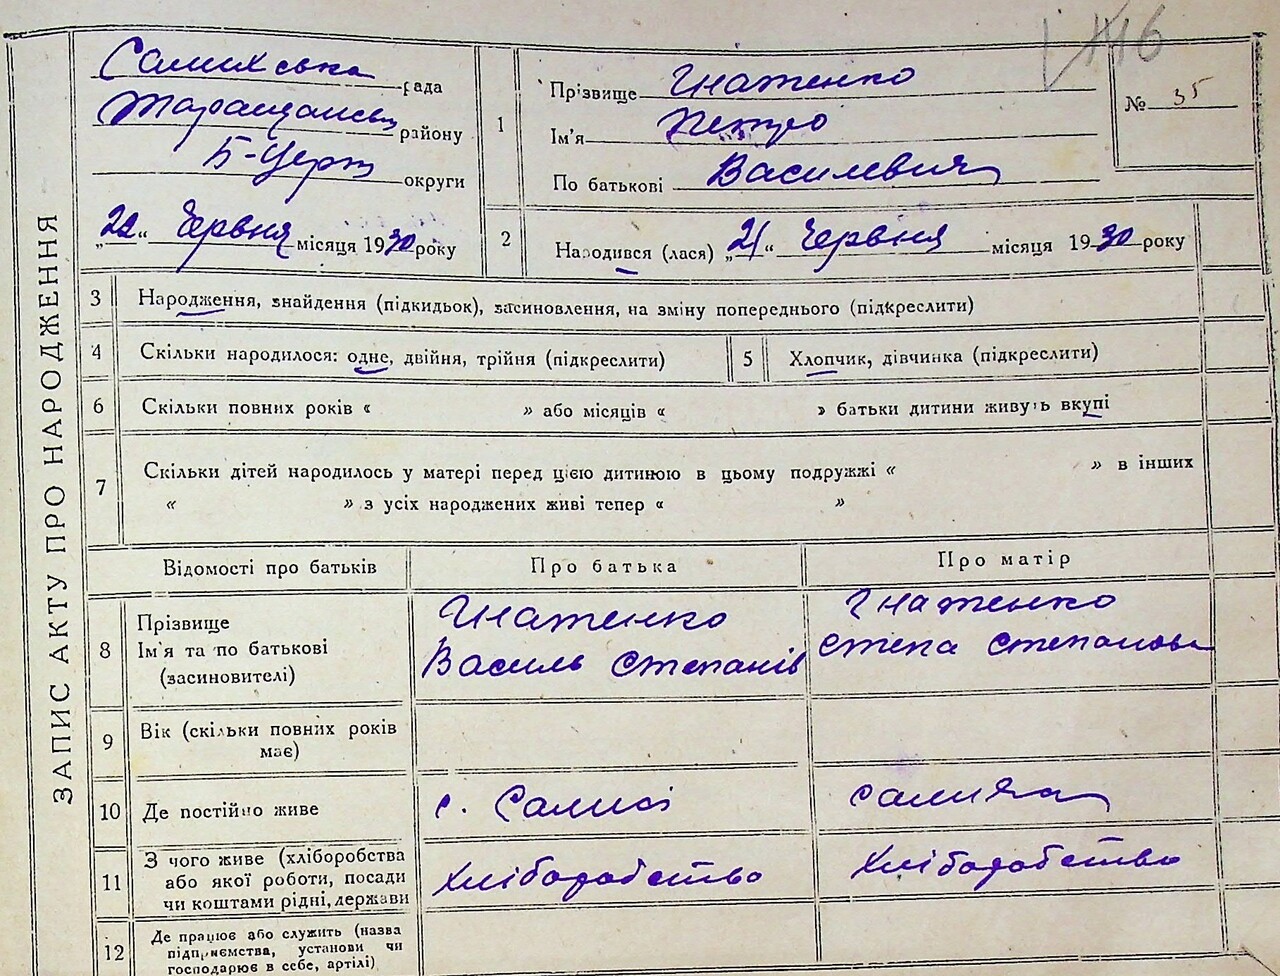 ЗАПИС АКТУ ПРО НАРОДЖЕННЯ
рада
району
Б-Церк округи
„22“ Червня місяця 1930 року
1
Прізвище Гнатенко
Ім'я Петро
По батькові Василевич
№ 35
2
Народився (лася) „21“ Червня місяця 1930 року
3 Народження, знайдення (підкидьок), засиновлення, на зміну попереднього (підкреслити)
4 Скільки народилося: одне, двійня, трійня (підкреслити)
5 Хлопчик, дівчинка (підкреслити)
6 Скільки повних років « » або місяців « » батьки дитини живуть вкупі
7 Скільки дітей народилось у матері перед цією дитиною в цьому подружжі « » в інших
« » з усіх народжених живі тепер « »
Відомості про батьків
Про батька
Про матір
8
Прізвище
Ім'я та по батькові
(засиновителі)
Гнатенко
Василь Степанів
Гнатенко
Степанова
9 Вік (скільки повних років
має)
10 Де постійно живе
с.
11
З чого живе (хліборобства
або якої роботи, посади
чи коштами рідні, держави
Хліборобство
Хліборобство
12
Де працює або служить (назва
підприємства, установи чи
господарює в себе, артілі)